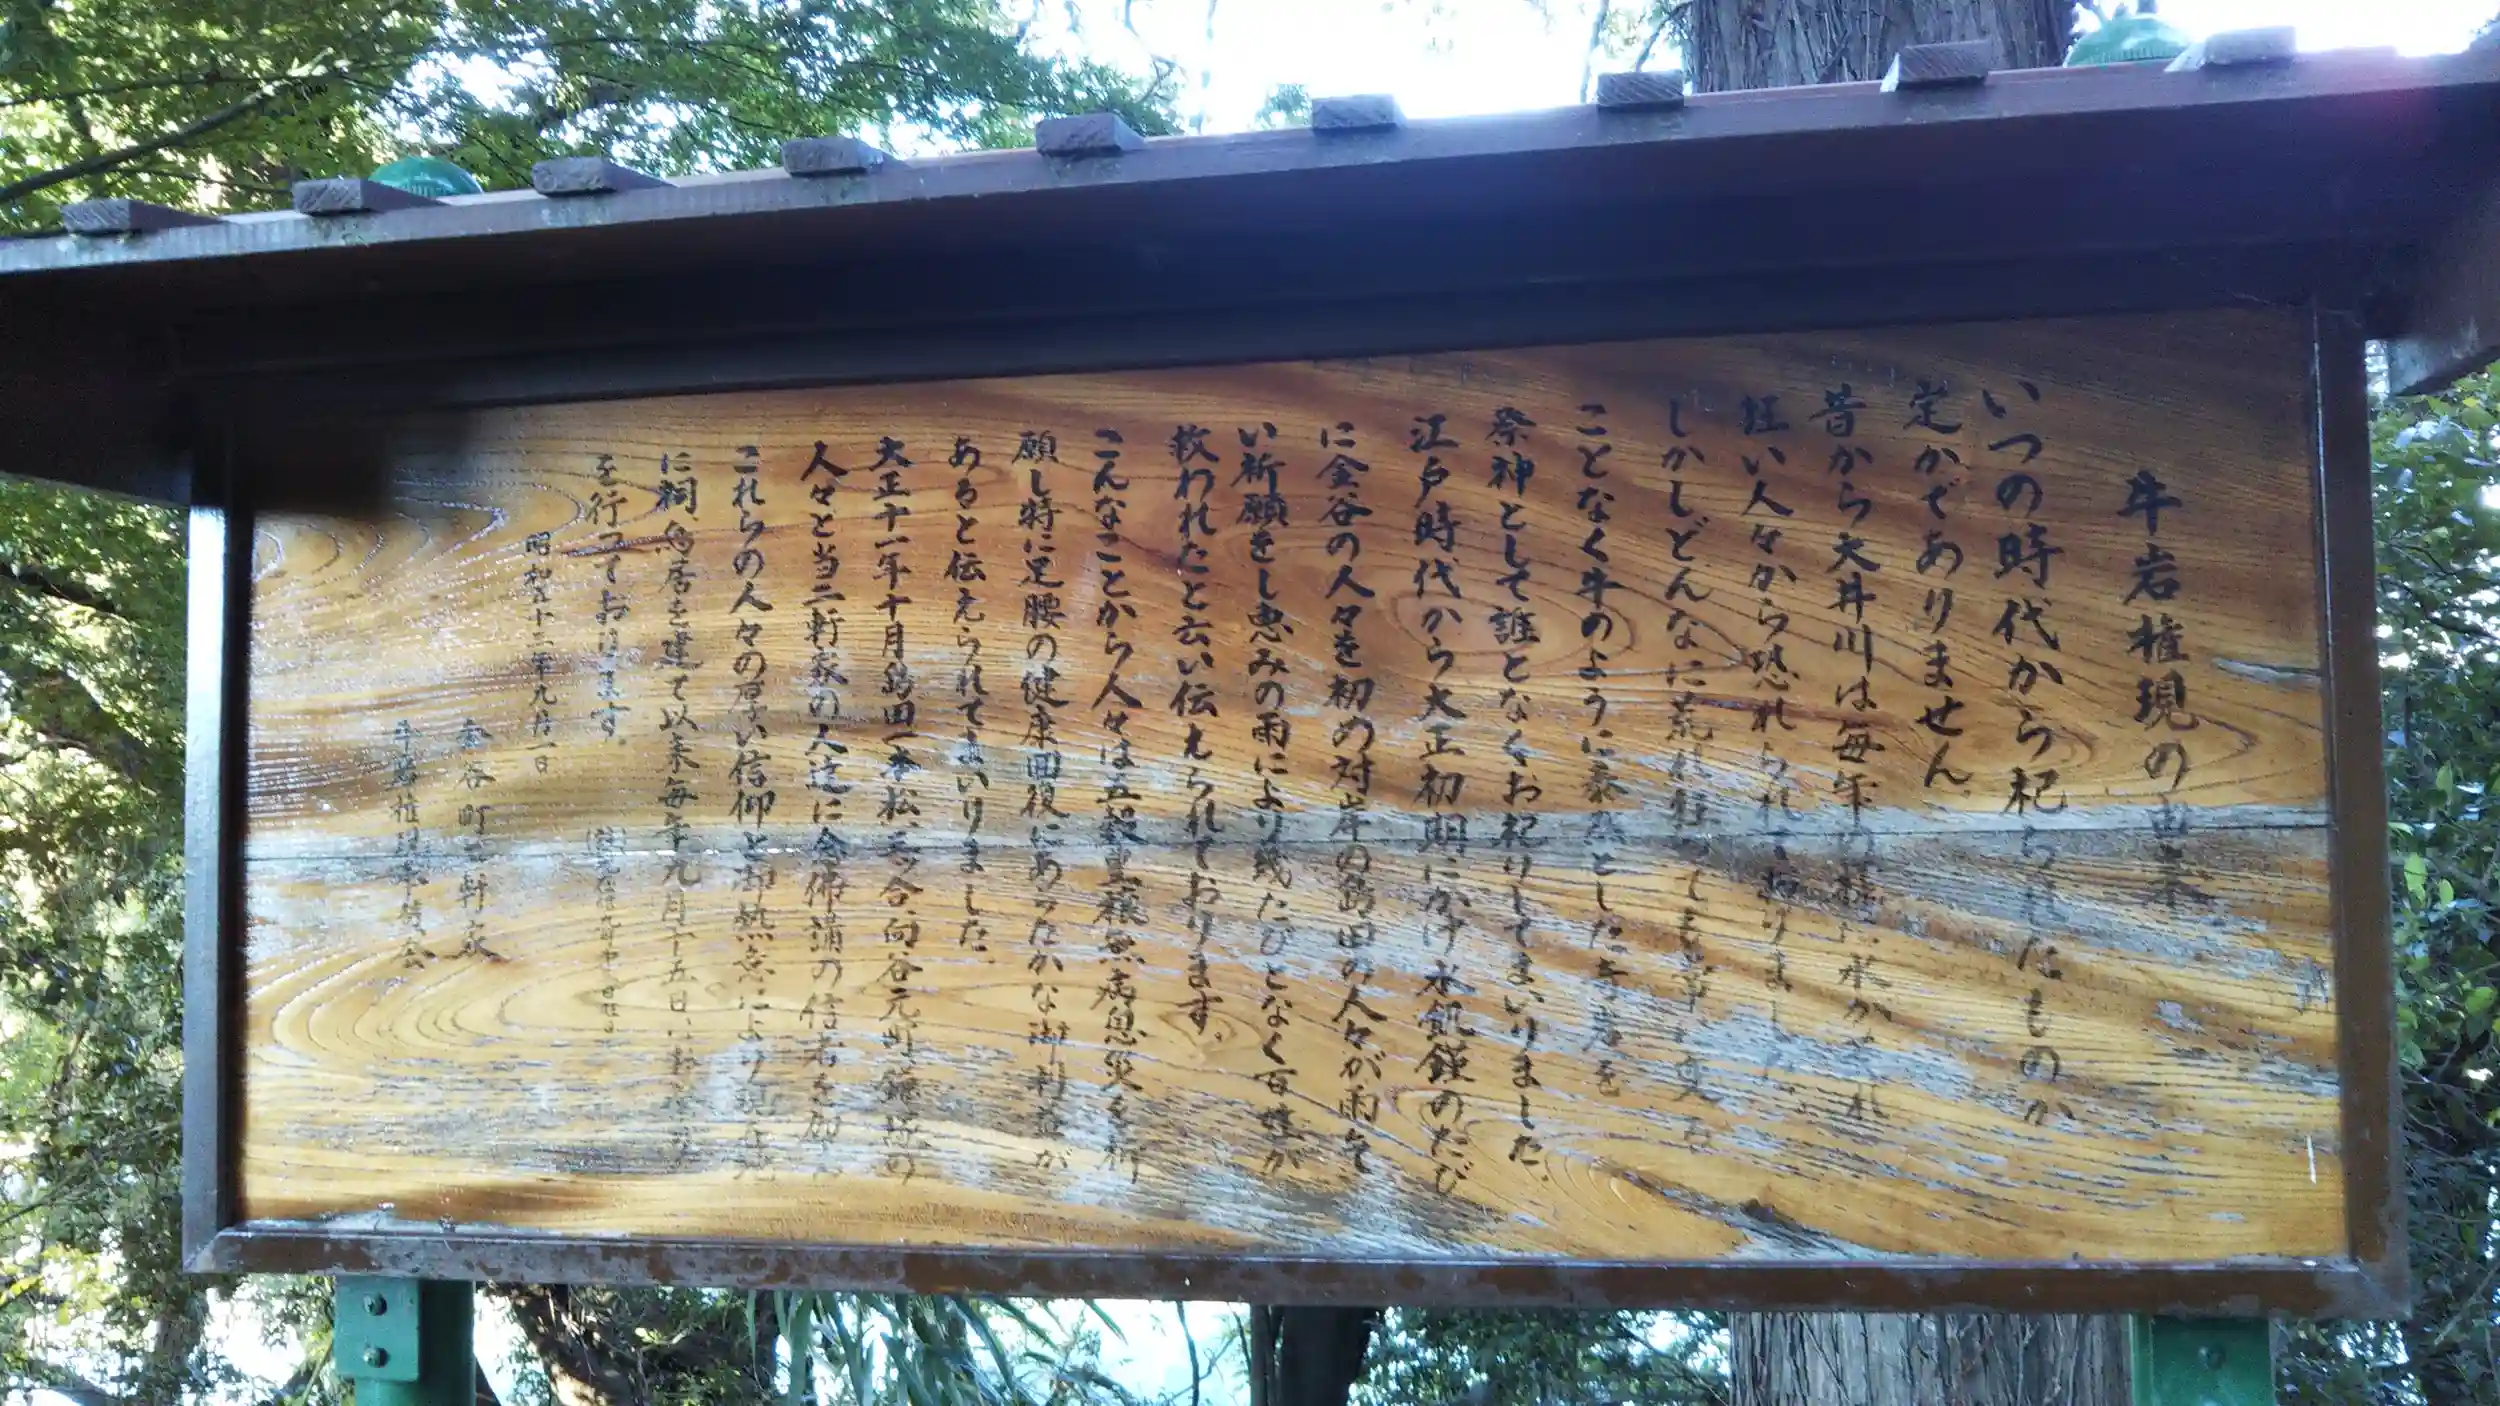 牛岩権現の由来
いつの時代から祀られたものか
定かでありません。
昔から大井川は毎年の様に水が荒れ
狂い人々から恐れられておりました。
しかしどんなに荒れ狂っても草
ことなく牛のように泰然とした
祭神として誰となくお祀りしてまいりました。
江戸時代から大正初期にかけ水飢饉のたび
に金谷の人々を初め対岸の島田の人々が雨乞
い祈願をし恵みの雨により幾たびとなく百姓が
救われたと云い伝えられております。
こんなことから人々は五穀豊穣無病息災を祈
願し特に足腰の健康回復にあらたかな御利益が
あると伝えられてまいりました。
大正十一年十月島田一本松、三ッ合、向谷元町、鎌塚の
人々と当二軒家の人達に念佛講の信者を加え
これらの人々の厚い信仰と御熱意により現在地
に祠、鳥居を建て以来毎年九月十五日に
を行っております。
昭和五十二年九月一日
金谷町二軒家
牛岩権現奉賛会